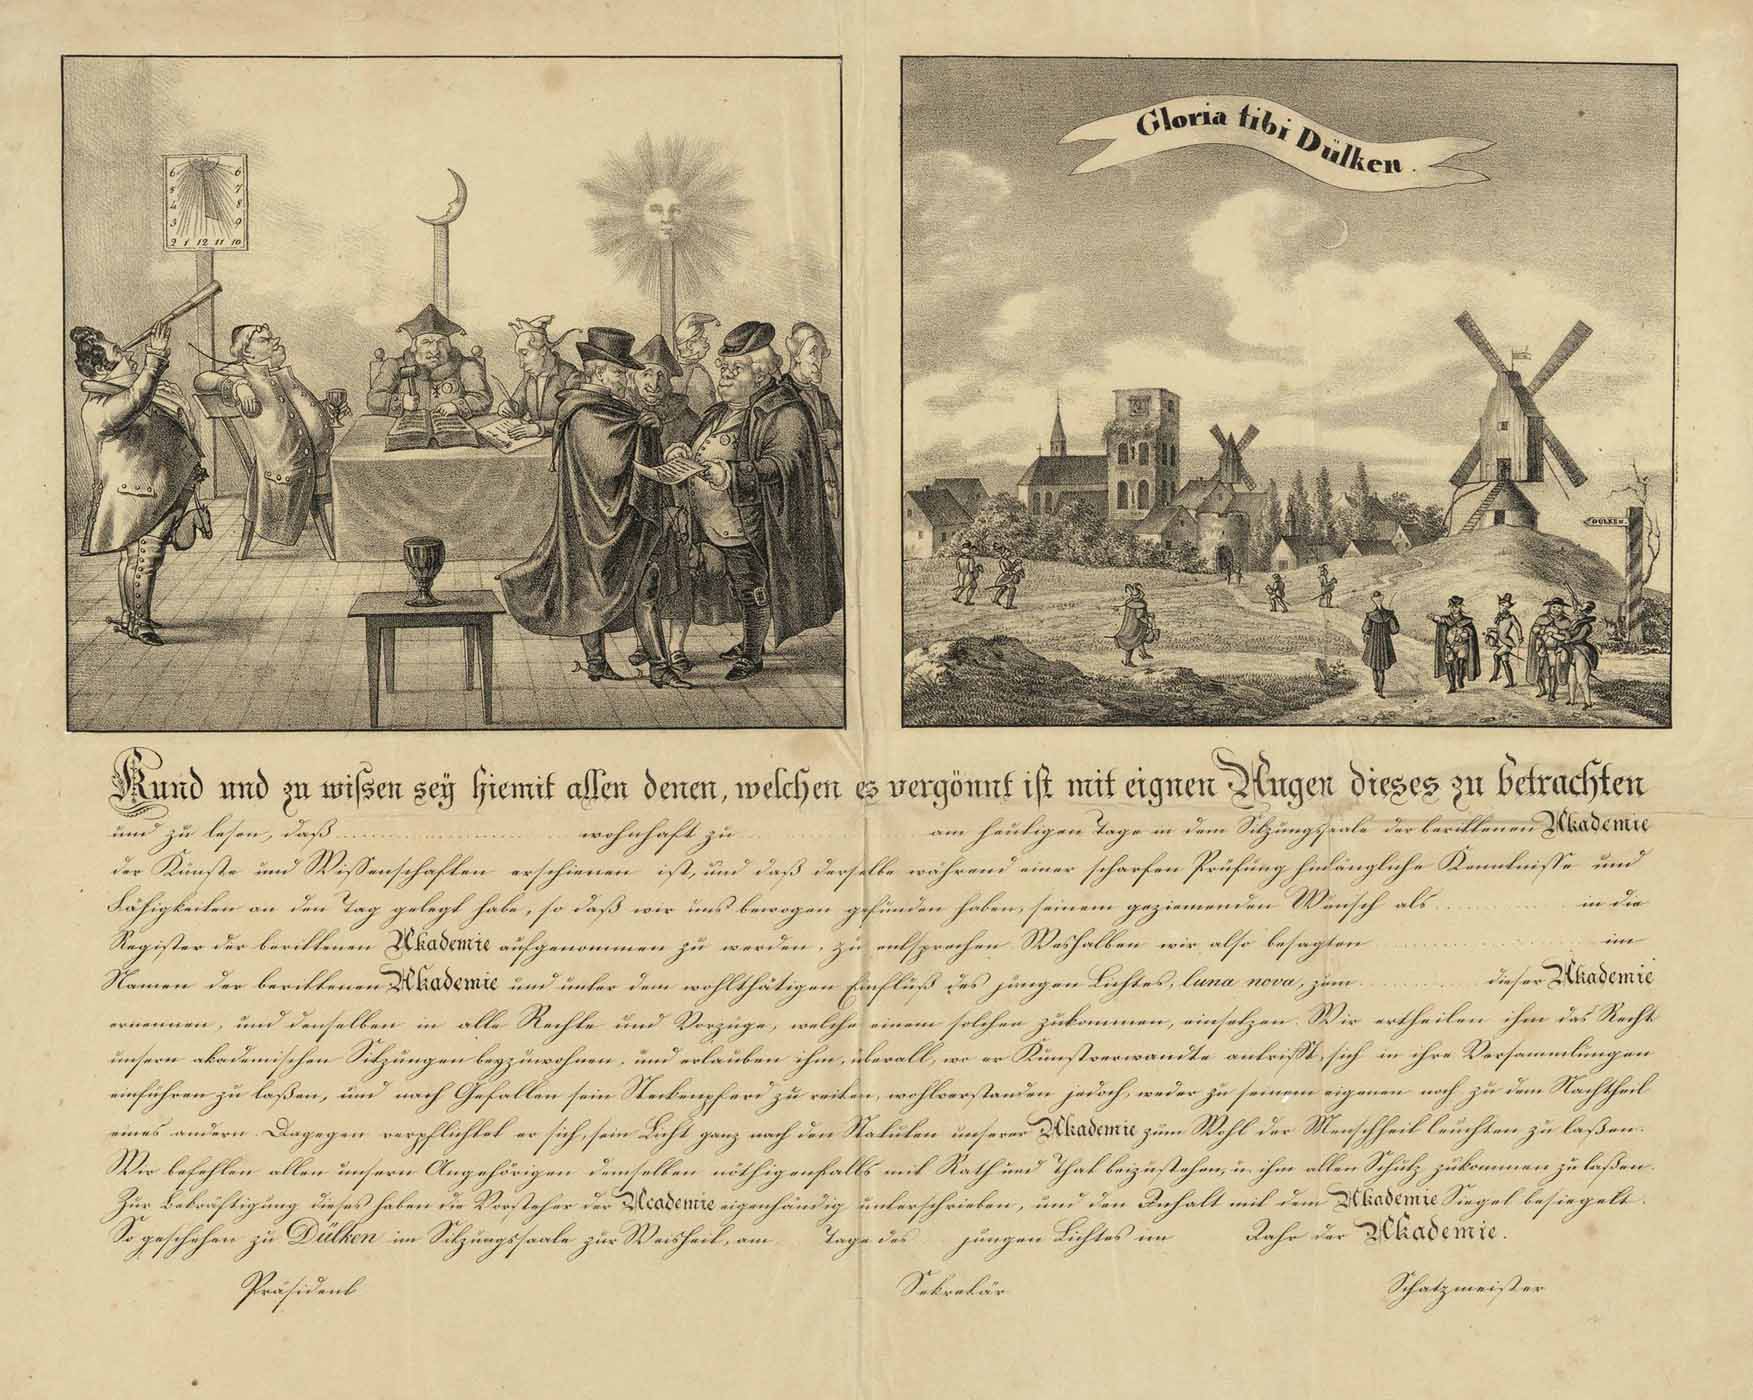 6 6
5 7
4 8
3 9
2 1 12 11 10
Gloria tibi Dülken.
DÜLKEN.
Kund und zu wissen sey hiemit allen denen, welchen es vergönnt ist mit eignen Augen dieses zu betrachten
und zu lesen, daß wohnhaft zu am heutigen Tage in dem Sitzungssaale der berittenen Akademie
der Künste und Wissenschaften erschienen ist, und daß derselbe während einer scharfen Prüfung hinlängliche Kenntnisse und
Fähigkeiten an den Tag gelegt habe, so daß wir uns bewogen gefunden haben, seinem geziemenden Wunsch als in die
Register der berittenen Akademie aufgenommen zu werden, zu entsprechen. Weshalben wir also besagten im
Namen der berittenen Akademie und unter dem wohlthätigen Einfluß des jungen Lichtes, luna nova, zum dieser Akademie
ernennen, und denselben in alle Rechte und Vorzüge, welche einem solchen zukommen, einsetzen. Wir ertheilen ihm das Recht
unsern akademischen Sitzungen beyzuwohnen, und erlauben ihm, überall, wo er Kunstverwandte antrifft, sich in ihre Versammlungen
einführen zu laßen, und nach Gefallen sein Steckenpferd zu reiten, wohlverstanden jedoch, weder zu seinem eigenen noch zu dem Nachtheil
eines andern. Dagegen verpflichtet er sich, sein Licht ganz nach den Statuten unserer Akademie zum Wohl der Menschheit leuchten zu laßen.
Wir befehlen allen unsern Angehörigen demselben nöthigenfalls mit Rath und That beizustehen, u. ihm allen Schutz zukommen zu laßen.
Zur Bekräftigung dieses haben die Vorsteher der Academie eigenhändig unterschrieben, und den Inhalt mit dem Akademie Siegel besiegelt.
So geschehen zu Dülken im Sitzungssaale zur Weisheit, am Tage des jungen Lichtes im Jahr der Akademie.
Präsident Sekretär Schatzmeister